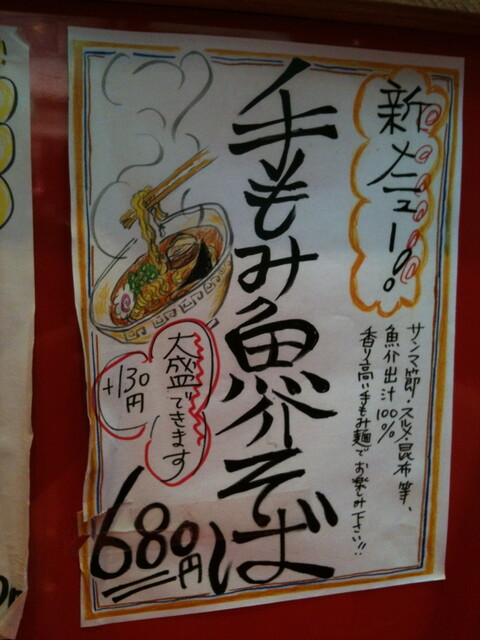 新メニューの。
手もみ魚介そば
サンマ節・スルメ・昆布等、
魚介出汁100%
香り高い手もみ麺でお楽しみ下さい!!
大盛できます
+130円
680円